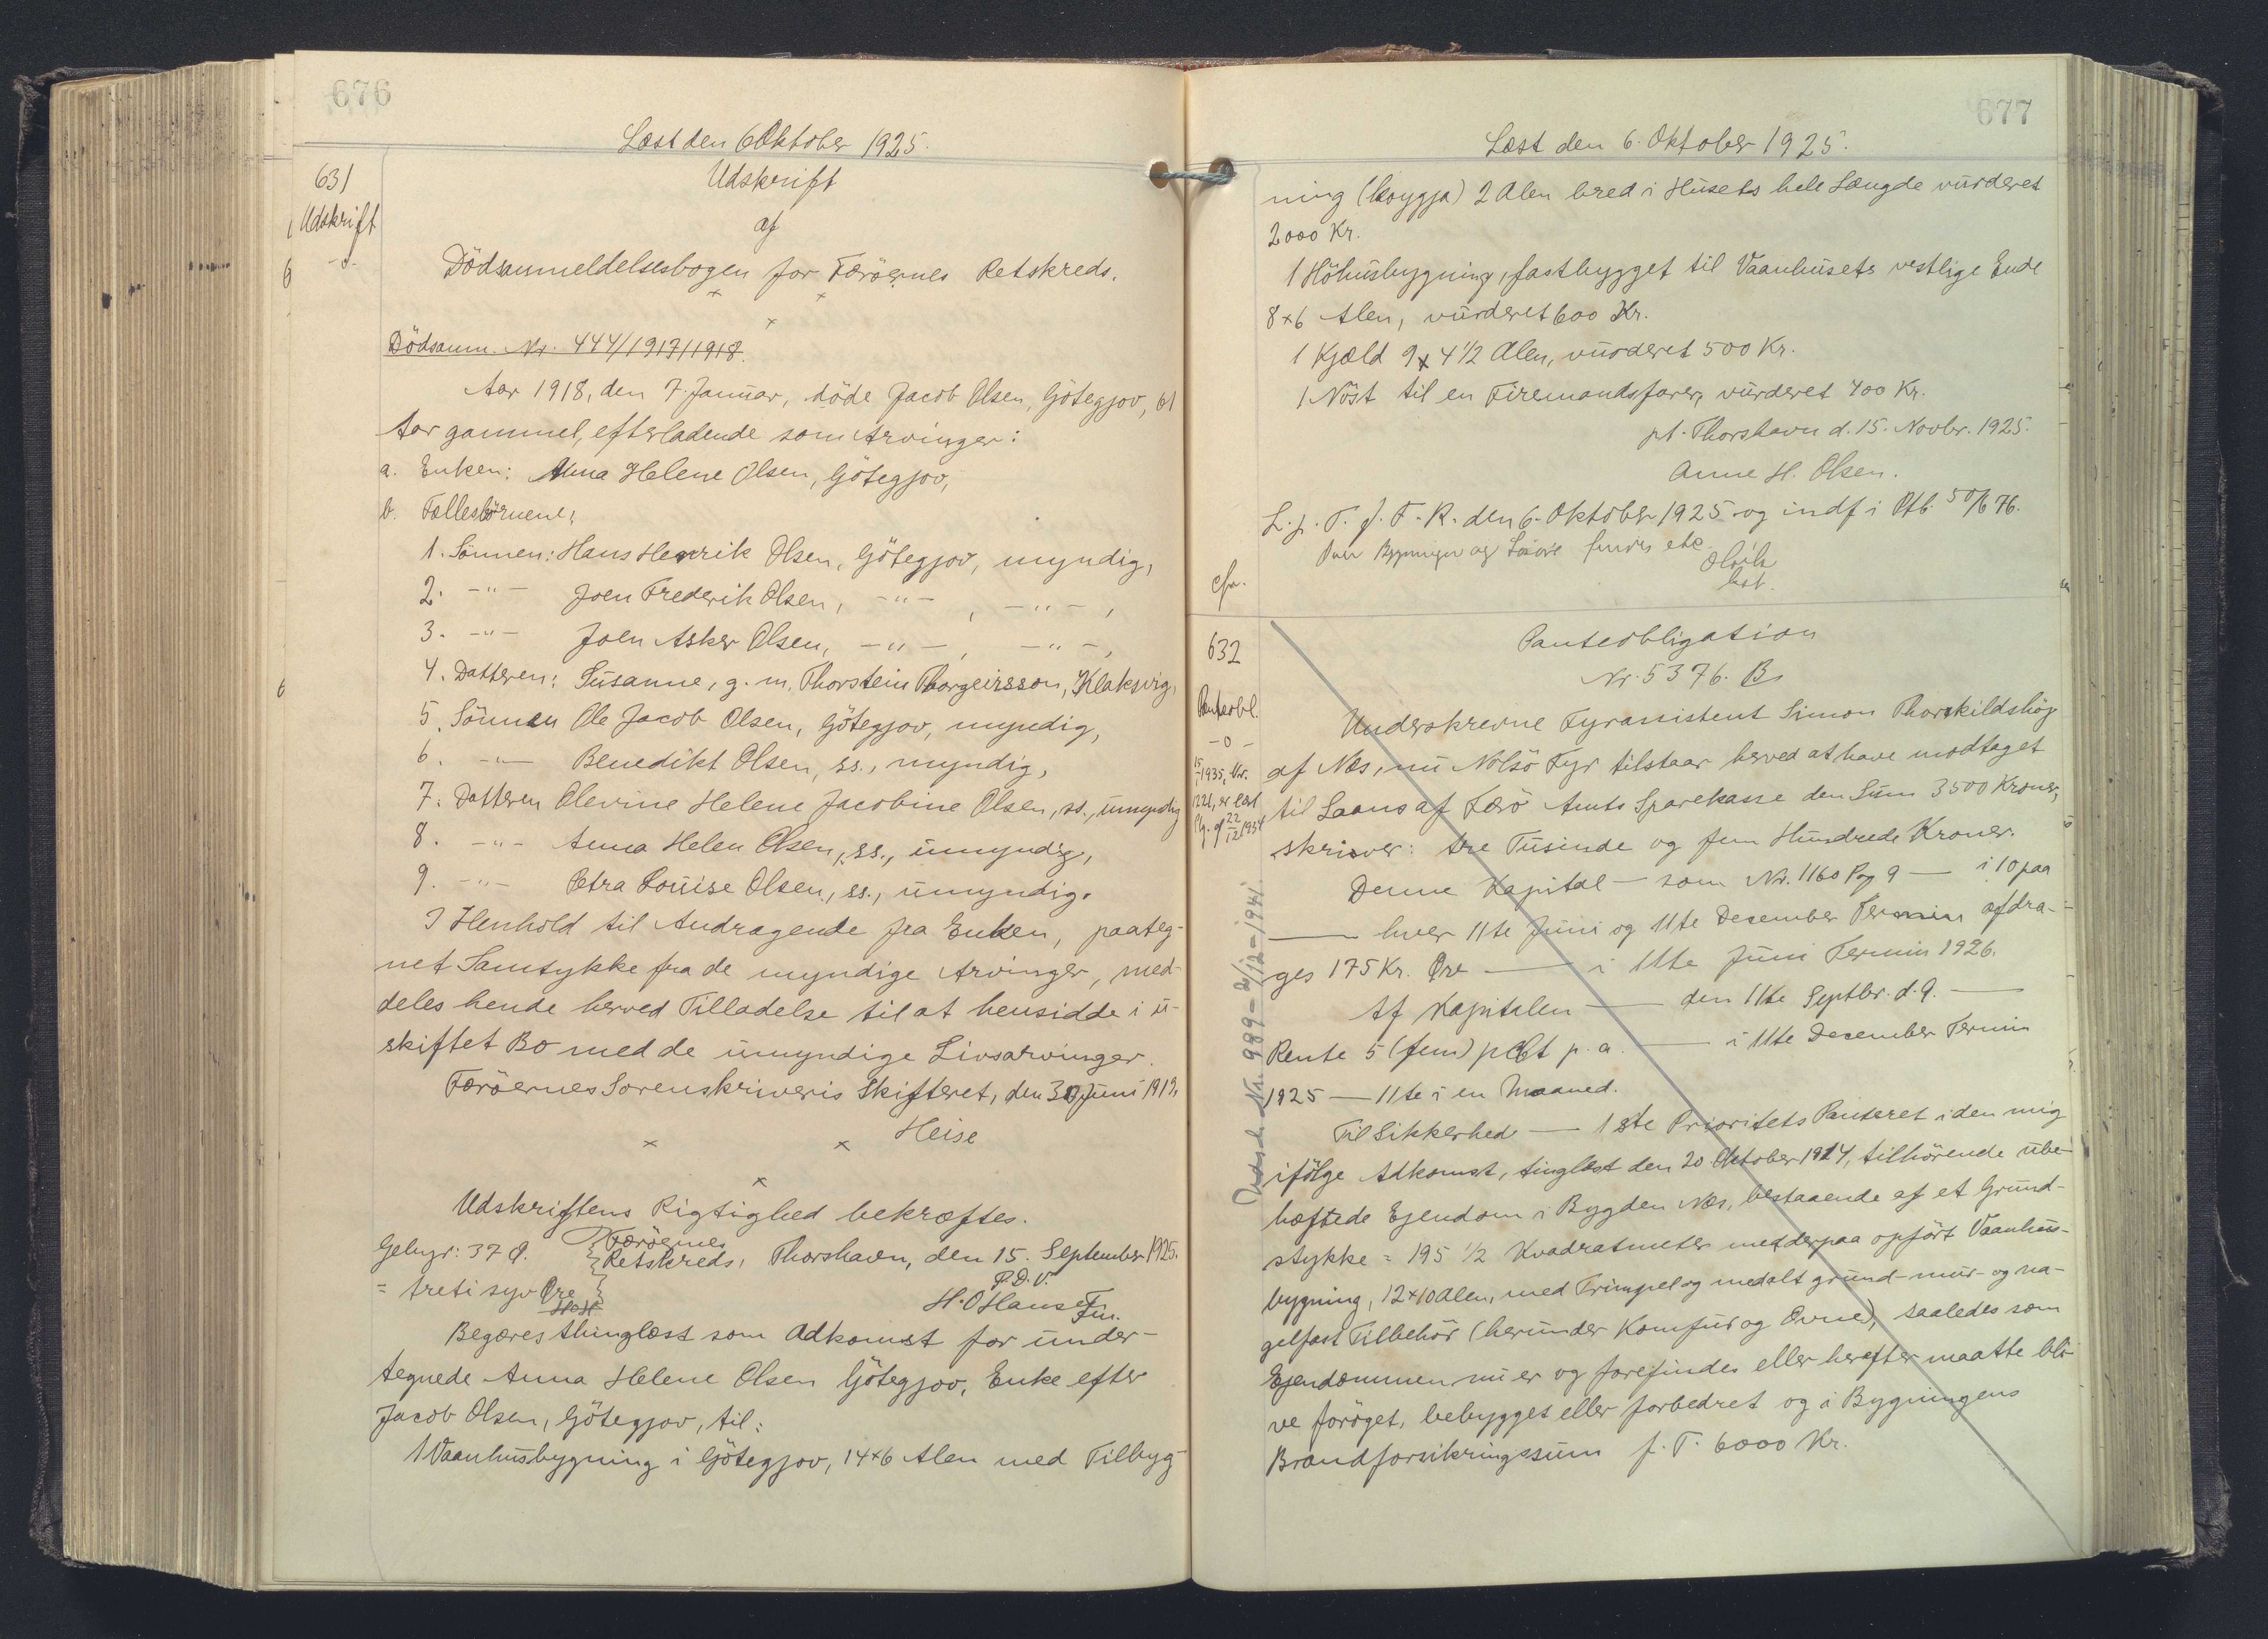 676
Læst den 6 Oktober 1925.
631
Udskrift
Udskrift
af
Dödsanmeldelsesbogen for Færöernes Retskreds.
Dödsanm. Nr. 444/1917/1918.
Aar 1918, den 7. Januar, döde Jacob Olsen, Götegjov, 61
Aar gammel, efterladende som Arvinger:
a. Enken: Anna Helene Olsen, Götegjov,
b. Fællesbörnene:
1. Sönnen: Hans Henrik Olsen, Götegjov, myndig,
2. -"- Joen Frederik Olsen, -"-, -"-,
3. -"- Joen Asker Olsen, -"-, -"-,
4. Datteren: Susanne, g. m. Thorstein Thorgeirsson, Klaksvig,
5. Sönnen Ole Jacob Olsen, Götegjov, myndig,
6. -"- Benedikt Olsen, ss., myndig,
7. Datteren Olevine Helene Jacobine Olsen, ss., umyndig
8. -"- Anna Helen Olsen, ss., umyndig,
9. -"- Petra Louise Olsen, ss., umyndig.
I Henhold til Andragende fra Enken, paateg-
net Samtykke fra de myndige Arvinger, med-
deles hende herved Tilladelse til at hensidde i u-
skiftet Bo med de umyndige Livsarvinger.
Færöernes Sorenskriveris Skifteret, den 30 Juni 1919.
Heise
Udskriftens Rigtighed bekræftes.
Gebyr: 37 Ø.
= treti syv Øre
H.H.
Færöernes
Retskreds, Thorshavn, den 15. September 1925.
P.D.V.
H.O Hansen
Fm.
Begæres thinglæst som Adkomst for under-
tegnede Anna Helene Olsen Götegjov, Enke efter
Jacob Olsen, Götegjov, til:
1 Vaanhusbygning i Götegjov, 14 x 6 Alen med Tilbyg-
677
Læst den 6. Oktober 1925.
ning (koyggja) 2 Alen bred i Husets hele Længde vurderet
2000 Kr.
1 Höhusbygning, fastbygget til Vaanhusets vestlige Ende
8 x 6 Alen, vurderet 600 Kr.
1 Kjæld 9 x 4 1/2 Alen, vurderet 500 Kr.
1 Nöst til en Firemandsfarer, vurderet 400 Kr.
pt. Thorshavn d. 15. Novbr. 1925.
Anne H. Olsen.
L. p. T. f. F. R. den 6. Oktober 1925 og indf i Ptb.
632
Panteobl.
-o-
Panteobligation
Nr. 5376. B.
Underskrevne Fyrassistent Simon Thorkildshöj
af Næs, nu Nolsö Fyr tilstaar herved at have modtaget
til Laans af Færö Amts Sparekasse den Sum 3500 Kroner,
skriver: tre Tusinde og fem Hundrede Kroner.
Denne Kapital — som Nr. 1160 Pag 9 — i 10 paa
— hver 11te Juni og 11te December Termin afdra-
ges 175 Kr. Øre — i 11te Juni Termin 1926.
Af Kapitalen — den 11te Septbr. d. A. —
Rente 5 (fem) pCt p. a. — i 11te December Termin
1925 — 11te i en Maaned.
Til Sikkerhed — 1ste Prioritets Panteret i den mig
ifölge Adkomst, tinglæst den 20 Oktober 1924, tilhörende ube-
hæftede Ejendom i Bygden Næs, bestaaende af et Grund-
stykke = 195 1/2 Kvadratmeter med derpaa opfört Vaanhus-
bygning, 12 x 10 Alen, med Trimpel og med alt grund- mur- og na-
gelfast Tilbehör (herunder Komfur og Ovne), saaledes som
Ejendommen nu er og forefindes eller herefter maatte bli-
ve foröget, bebygget eller forbedret og i Bygningens
Brandforsikringssum f. T. 6000 Kr.
Udsl. Nr. 989 - 2/12-1941.